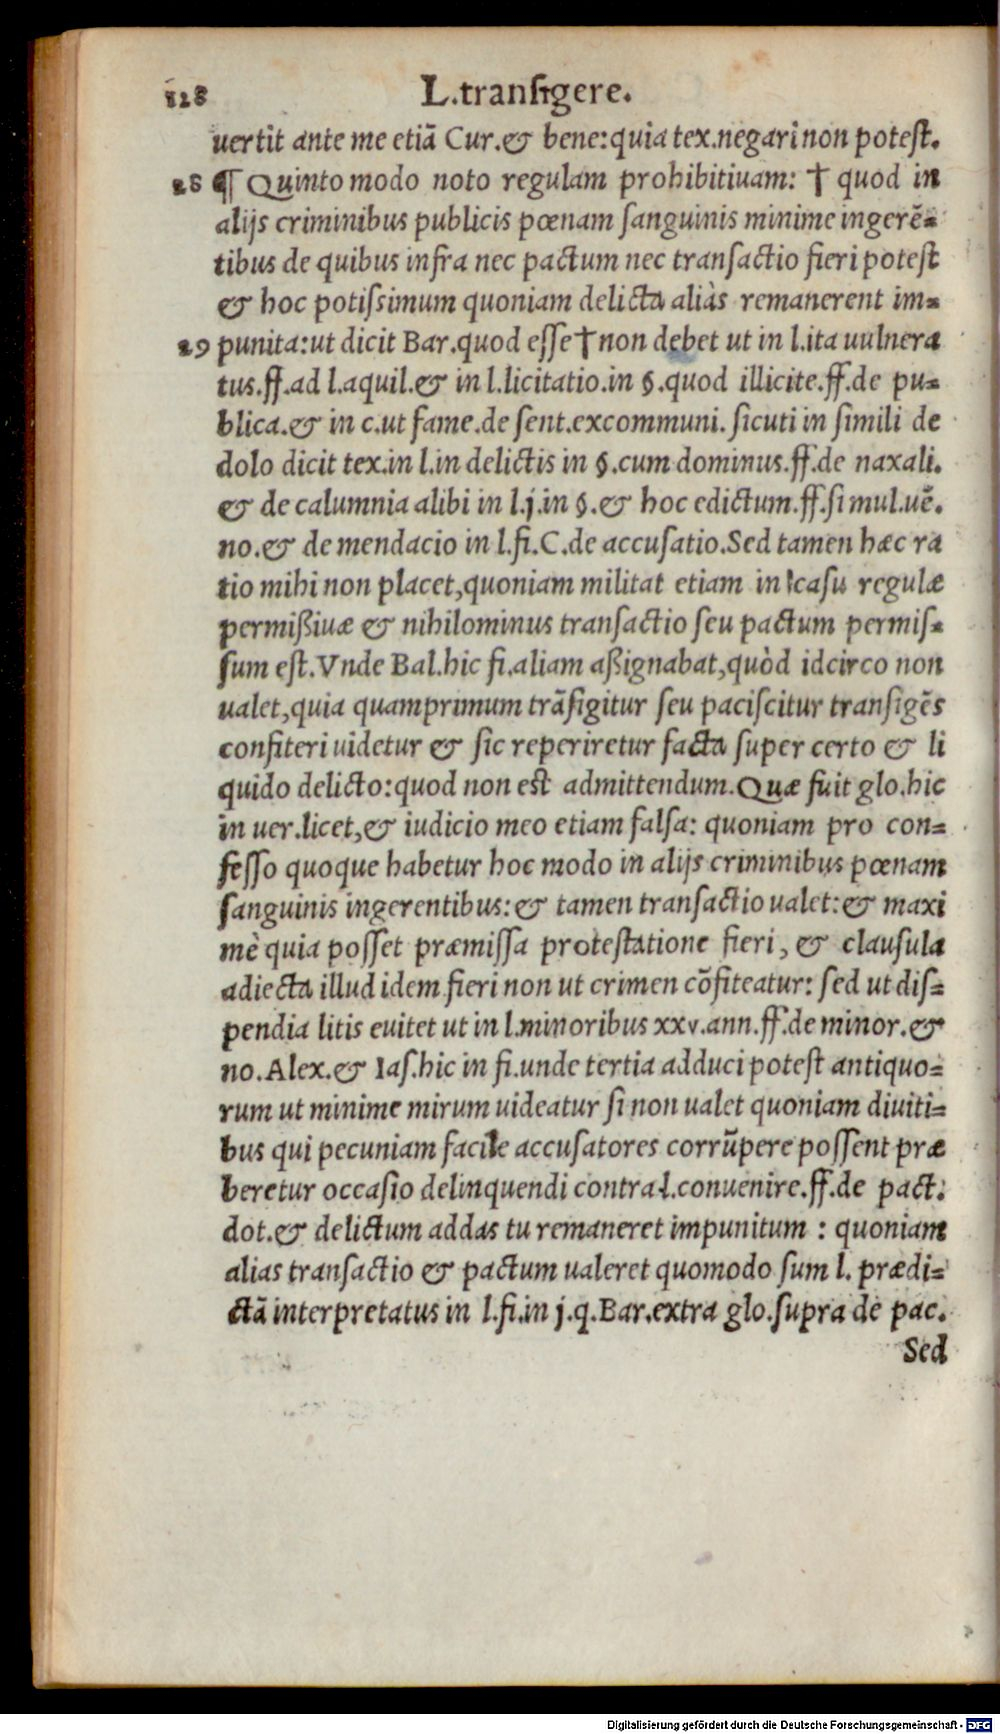 128 L.transigere.
uertit ante me etiã Cur.& bene: quia tex.negari non potest.
28 ¶ Quinto modo noto regulam prohibitiuam: † quod in
alijs criminibus publicis pœnam sanguinis minime ingerẽ-
tibus de quibus infra nec pactum nec transactio fieri potest
& hoc potissimum quoniam delicta aliàs remanerent im-
29 punita: ut dicit Bar.quod esse † non debet ut in l.ita uulnera
tus.ff.ad l.aquil.& in l.licitatio.in §.quod illicite.ff.de pu-
blica.& in c.ut fame.de sent.excommuni. sicuti in simili de
dolo dicit tex.in l.in delictis in §.cum dominus.ff.de naxali.
& de calumnia alibi in l.j.in §.& hoc edictum.ff.si mul.uẽ.
no.& de mendacio in l.fi.C.de accusatio.Sed tamen hæc ra
tio mihi non placet,quoniam militat etiam in casu regulæ
permißiuæ & nihilominus transactio seu pactum permis-
sum est.Vnde Bal.hic fi.aliam aßignabat,quòd idcirco non
ualet,quia quamprimum trãsigitur seu paciscitur transigẽs
confiteri uidetur & sic reperiretur facta super certo & li
quido delicto: quod non est admittendum.Quæ fuit glo.hic
in uer.licet,& iudicio meo etiam falsa: quoniam pro con-
fesso quoque habetur hoc modo in alijs criminibus pœnam
sanguinis ingerentibus: & tamen transactio ualet: & maxi
mè quia posset præmissa protestatione fieri, & clausula
adiecta illud idem fieri non ut crimen cõfiteatur: sed ut dis-
pendia litis euitet ut in l.minoribus xxv.ann.ff.de minor.&
no.Alex.& Ias.hic in fi.unde tertia adduci potest antiquo-
rum ut minime mirum uideatur si non ualet quoniam diuiti-
bus qui pecuniam facile accusatores corrũpere possent præ
beretur occasio delinquendi contra l.conuenire.ff.de pact.
dot.& delictum addas tu remaneret impunitum : quoniam
alias transactio & pactum ualeret quomodo sum l. prædi-
ctã interpretatus in l.fi.in j.q.Bar.extra glo.supra de pac.
Sed
Digitalisierung gefördert durch die Deutsche Forschungsgemeinschaft - DFG